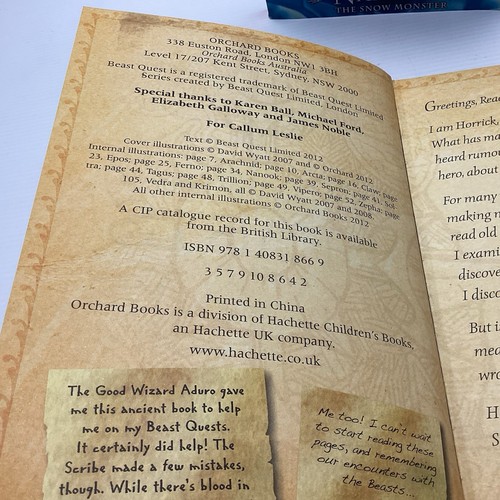 THE SNOW MONSTER
ORCHARD BOOKS
338 Euston Road, London NW1 3BH
Orchard Books Australia
Level 17/207 Kent Street, Sydney, NSW 2000
Beast Quest is a registered trademark of Beast Quest Limited
Series created by Beast Quest Limited, London
Special thanks to Karen Ball, Michael Ford,
Elizabeth Galloway and James Noble
For Callum Leslie
Text © Beast Quest Limited 2012
Cover illustrations © David Wyatt 2007 and © Orchard 2012
Internal illustrations: page 7, Arachnid; page 10, Arcta; page 16, Claw; page
23, Epos; page 25, Ferno; page 34, Nanook; page 39, Sepron; page 41, Sol
tra; page 44, Tagus; page 48, Trillion; page 49, Vipero; page 52, Zepha; page
105, Vedra and Krimon, all © David Wyatt 2007 and 2008.
All other internal illustrations © Orchard Books 2012
A CIP catalogue record for this book is available
from the British Library.
ISBN 978 1 40831 866 9
3 5 7 9 10 8 6 4 2
Printed in China
Orchard Books is a division of Hachette Children's Books,
an Hachette UK company.
www.hachette.co.uk
The Good Wizard Aduro gave
me this ancient book to help
me on my Beast Quests.
It certainly did help! The
Scribe made a few mistakes,
though. While there's blood in
Me too! I can't wait
to start reading these
pages, and remembering
our encounters with
the Beasts...
Greetings, Rea
I am Horrick,
What has ma
heard rumou
hero, about
For many
making n
read old
I exami
discove
I disco
But i
mea
wro
H
S